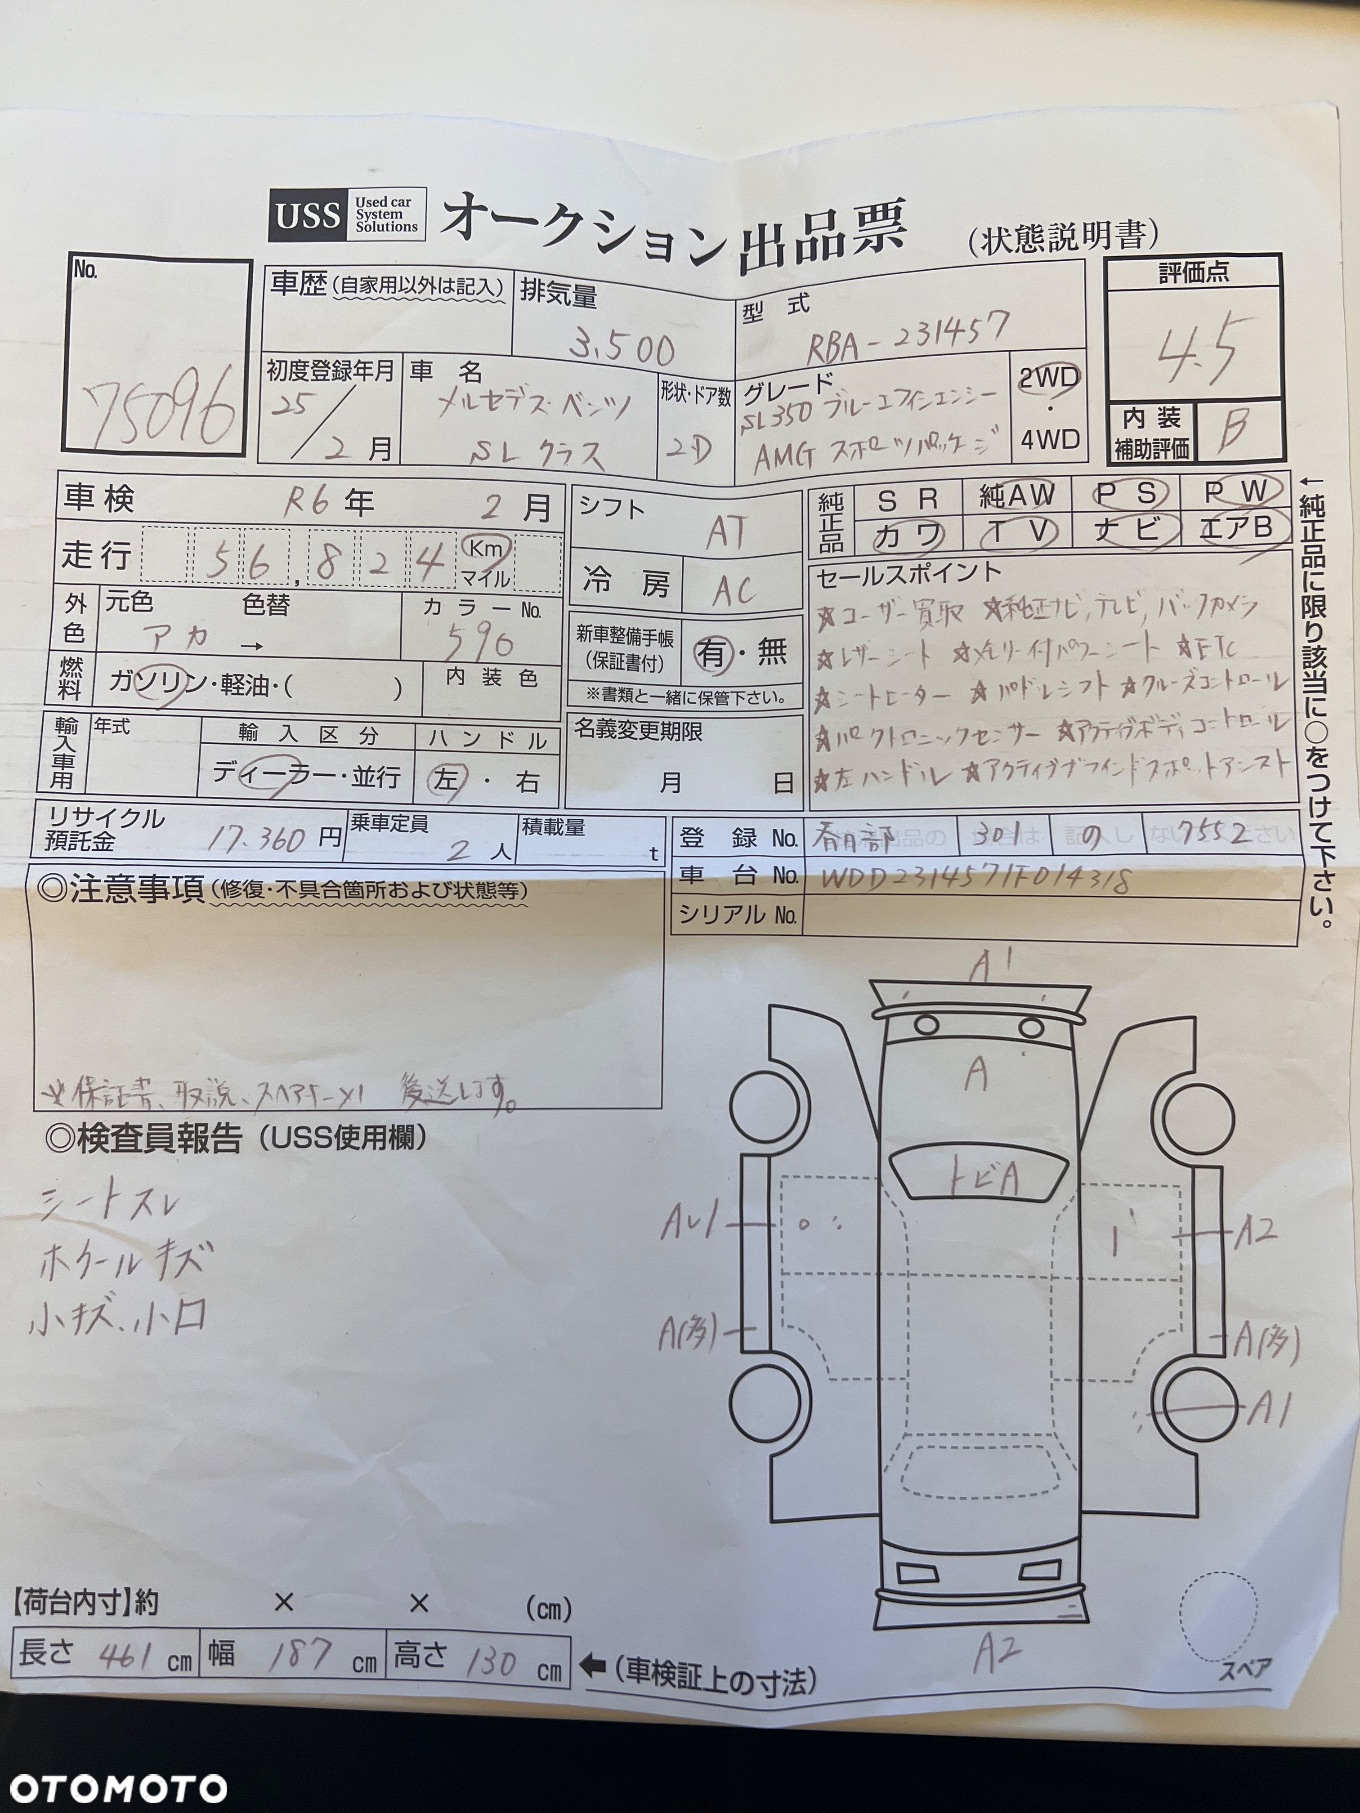 USS Used car System Solutions オークション出品票 (状態説明書)
No. 75096
車歴(自家用以外は記入)
排気量 3,500
型式 RBA-231457
評価点 4.5
内装補助評価 B
初度登録年月 25/2月
車名 メルセデス・ベンツ SLクラス
形状・ドア数 2D
グレード SL350 ブルーエフィシエンシー AMG スポーツパッケージ
2WD・4WD
車検 R6年 2月
走行 56,824 Km マイル
外色 元色 アカ → 色替
カラーNo. 590
燃料 ガソリン・軽油・( )
内装色
輸入車用 年式
輸入区分 ディーラー・並行
ハンドル 左・右
シフト AT
冷房 AC
新車整備手帳(保証書付) 有・無
※書類と一緒に保管下さい。
名義変更期限 月 日
純正品 SR 純AW PS PW
カワ TV ナビ エアB
←純正品に限り該当に○をつけて下さい。
セールスポイント
☆ユーザー買取 ☆純正ナビ,テレビ,バックカメラ
☆レザーシート ☆メモリー付パワーシート ☆ETC
☆シートヒーター ☆パドルシフト ☆クルーズコントロール
☆パクトロニックセンサー ☆アクティブボディコントロール
☆左ハンドル ☆アクティブブラインドスポットアシスト
リサイクル預託金 17,360円
乗車定員 2人
積載量 t
登録No. 春日部 301 の 7552
車台No. WDD2314571F014318
シリアルNo.
◎注意事項(修復・不具合箇所および状態等)
☆保証書、取説、スペアキー×1 後送します。
◎検査員報告(USS使用欄)
シートスレ
ホイールキズ
小キズ、小凹
A1
A
トビA
A2
A(多)
A(多)
A1
A2
【荷台内寸】約 × × (cm)
長さ 461 cm 幅 187 cm 高さ 130 cm ←(車検証上の寸法)
スペア
OTOMOTO